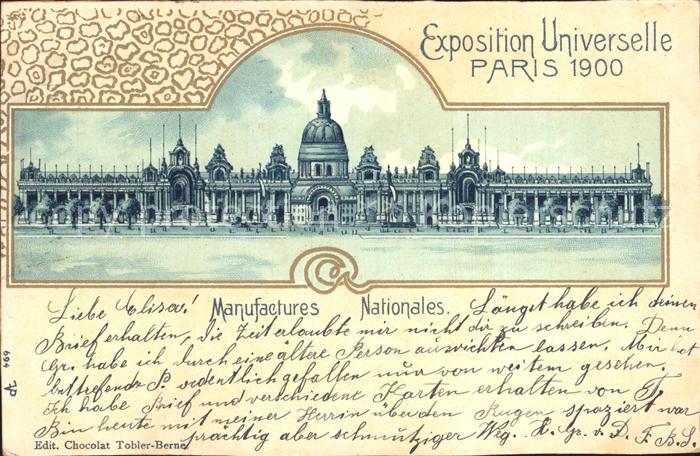 Exposition Universelle
PARIS 1900
Manufactures Nationales.
Liebe Elisa! Längst habe ich deinen
Brief erhalten, die Zeit erlaubte mir nicht dir zu schreiben. Deine
Gr. habe ich durch eine ältere Person ausrichten lassen. Mir hat
betreffende P. ordentlich gefallen nur von weitem gesehen.
Ich habe Brief und verschiedene Karten erhalten von F.
Bin heute mit meiner Herrin über den spaziert war
prächtig aber schmutziger Weg. H. Gr. v. D. F. B. S.
Edit. Chocolat Tobler-Berne
694